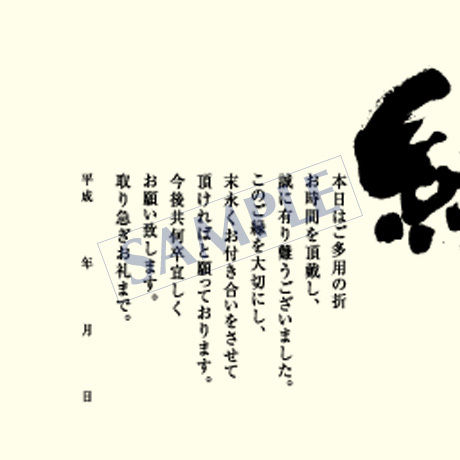 本日はご多用の折
お時間を頂戴し、
誠に有り難うございました。
このご縁を大切にし、
末永くお付き合いをさせて
頂ければと願っております。
今後共何卒宜しく
お願い致します。
取り急ぎお礼まで。
平成　年　月　日
SAMPLE